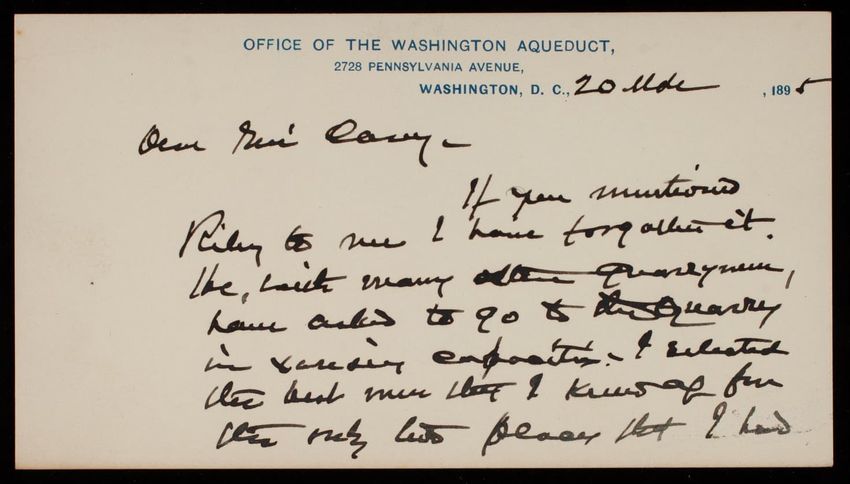 OFFICE OF THE WASHINGTON AQUEDUCT,
2728 PENNSYLVANIA AVENUE,
WASHINGTON, D. C., 20 Mch , 1895
Dear Casey -
If you mentioned
Riley to me I have forgotten it.
He, with many other quarrymen,
have asked to go to the quarry
in various capacities. I selected
the best men that I knew of for
the only two places that I had